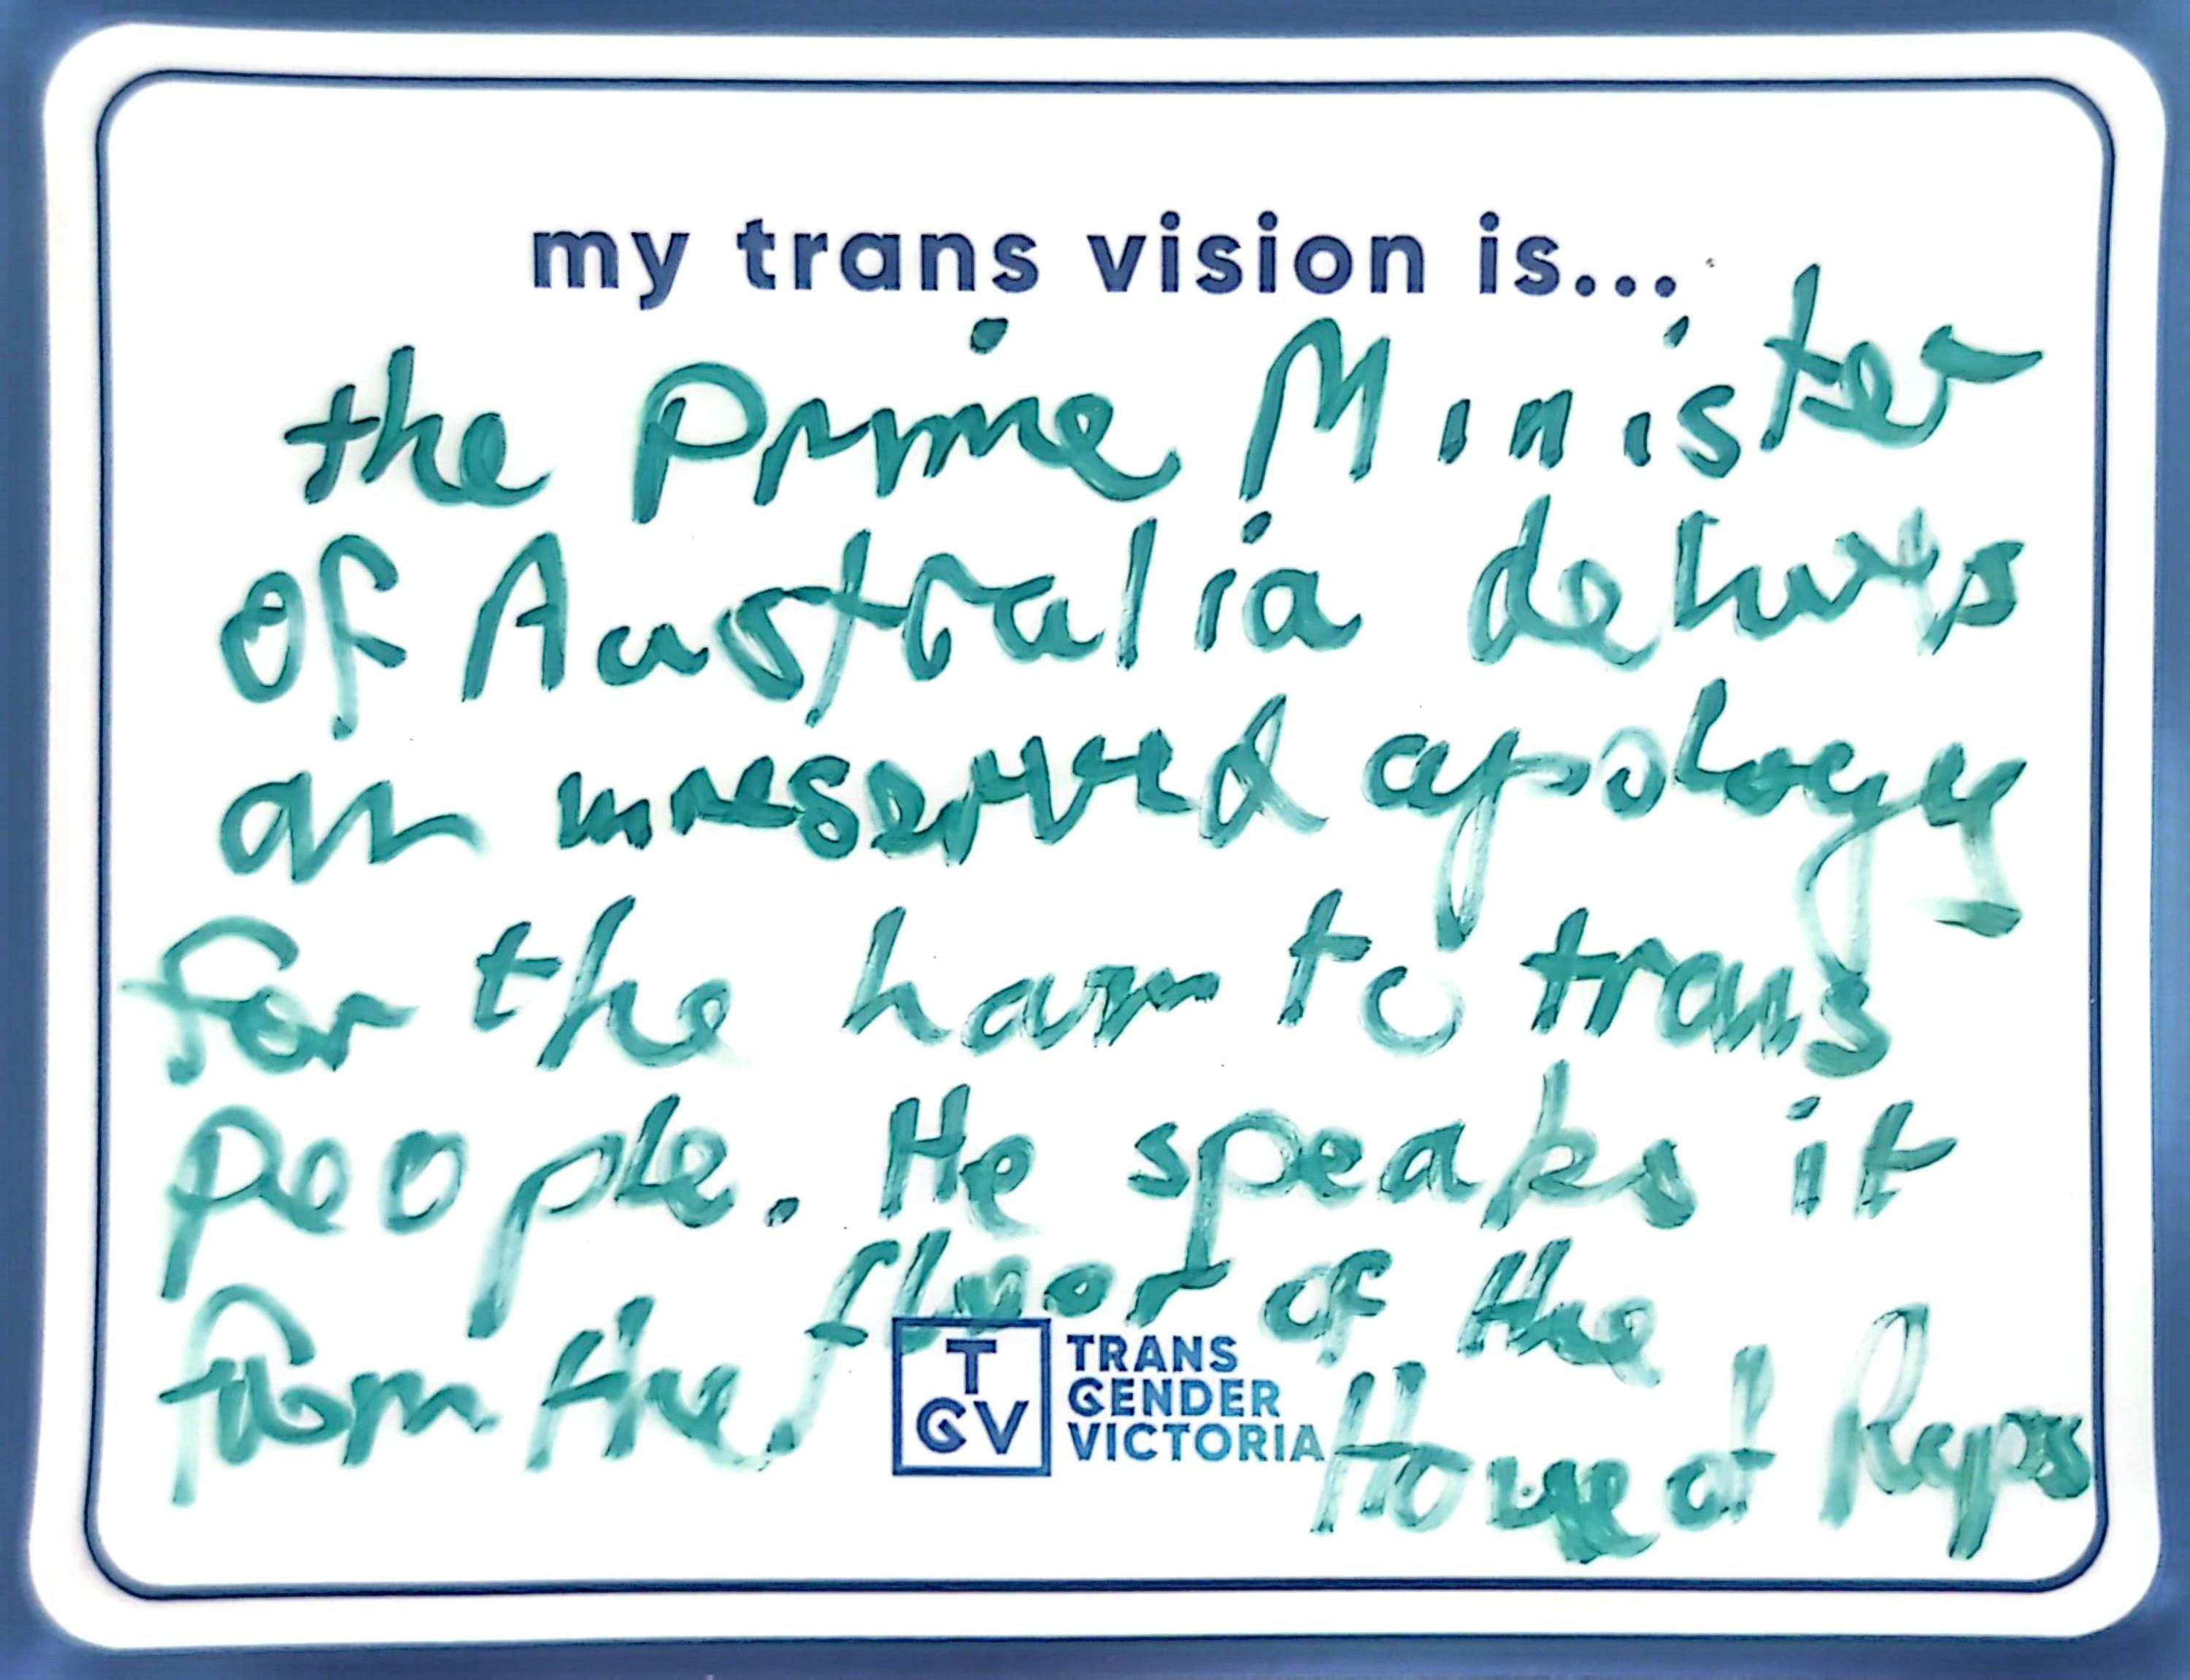 my trans vision is...
the Prime Minister
of Australia delivers
an unreserved apology
for the harm to trans
people. He speaks it
from the floor of the
House of Reps
TGV
TRANS
GENDER
VICTORIA